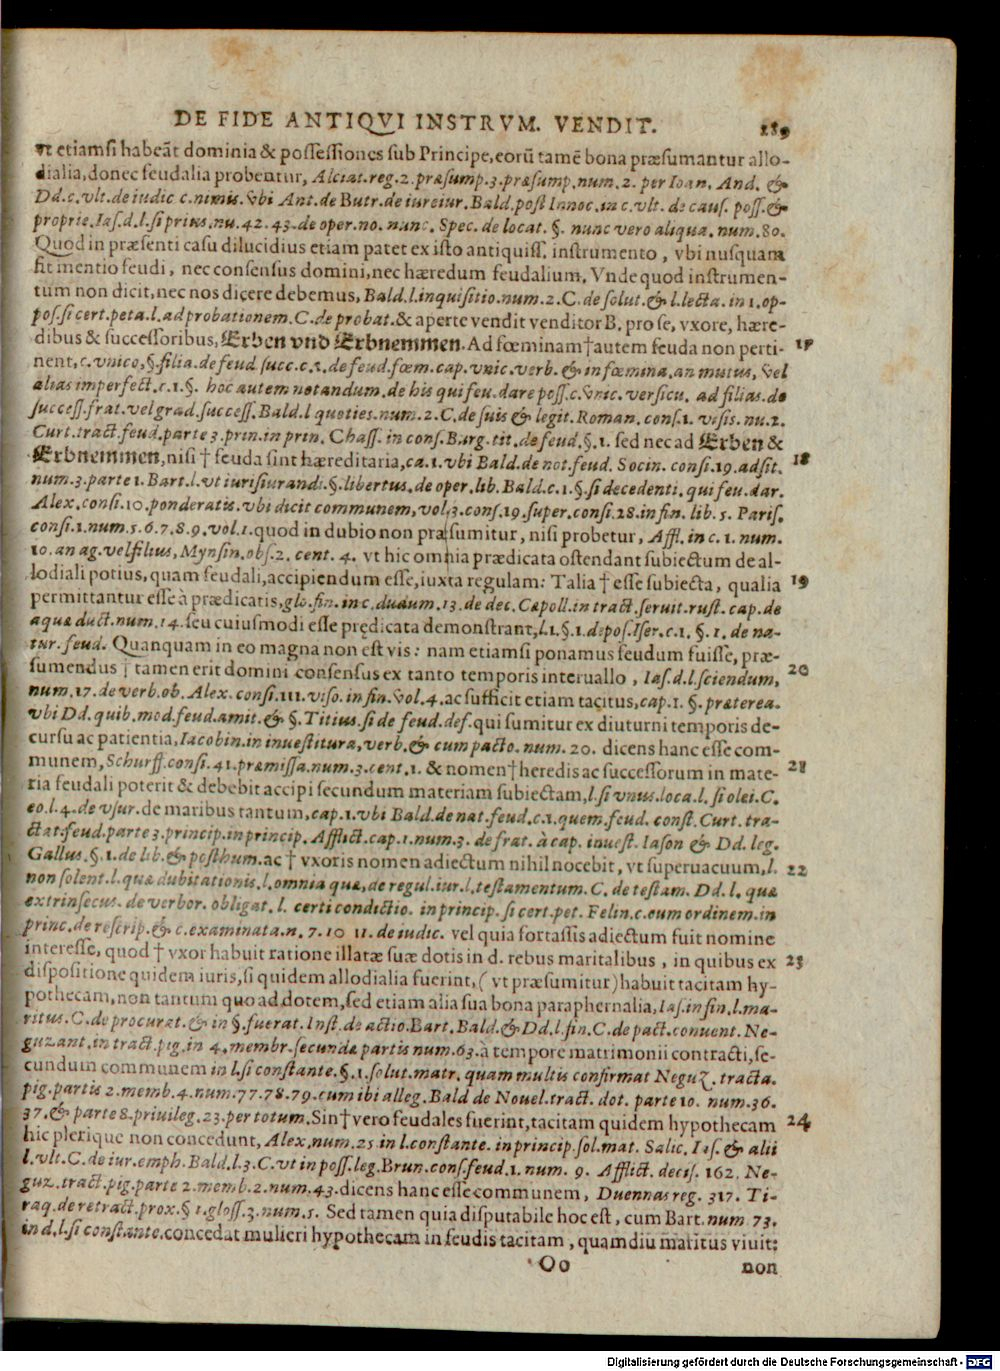 DE FIDE ANTIQVI INSTRVM. VENDIT. 289
vt etiamsi habeāt dominia & possessiones sub Principe, eorū tamē bona præsumantur allo-
dialia, donec feudalia probentur, Alciat. reg. 2. præsump. 3. præsump. num. 2. per Ioan. And. &
Dd. c. vlt. de iudic c. nimis. vbi Ant. de Butr. de iureiur. Bald. post Innoc. in c. vlt. de caus. poss. &
proprie. Ias. d. l. si prius. nu. 42. 43. de oper. no. nunc. Spec. de locat. §. nunc vero aliqua. num. 80.
Quod in præsenti casu dilucidius etiam patet ex isto antiquiss. instrumento, vbi nusquam
fit mentio feudi, nec consensus domini, nec hæredum feudalium. Vnde quod instrumen-
tum non dicit, nec nos dicere debemus, Bald. l. inquisitio. num. 2. C. de solut. & l. lecta. in 1. op-
pos. si cert. peta. l. ad probationem. C. de probat. & aperte vendit venditor B. pro se, vxore, hære-
dibus & successoribus, Erben vnd Erbnemmen. Ad fœminam † autem feuda non perti- 17
nent, c. vnico, §. filia. de feud succ. c. 1. de feud. fœm. cap. vnic. verb. & in fœmina. an mutus, vel
alias imperfect. c. 1. §. hoc autem notandum. de his qui feu. dare poss. c. vnic. versicu. ad filias. de
success. frat. vel grad. success. Bald. l quoties. num. 2. C. de suis & legit. Roman. cons. 1. visis. nu. 2.
Curt. tract. feud. parte 3. prin. in prin. Chass. in cons. Burg. tit. de feud. §. 1. sed nec ad Erben &
Erbnemmen, nisi † feuda sint hæreditaria, ca. 1. vbi Bald. de not. feud. Socin. consi. 19. ad sit. 18
num. 3. parte 1. Bart. l. vt iurisiurandi. §. libertus. de oper. lib. Bald. c. 1. §. si decedenti. qui feu. dar.
Alex. consi. 10. ponderatis. vbi dicit communem, vol. 3. cons. 19. super. consi. 28. in fin. lib. 5. Paris.
consi. 1. num. 5. 6. 7. 8. 9. vol. 1. quod in dubio non præsumitur, nisi probetur, Affl. in c. 1. num.
10. an ag. vel filius, Mynsin. obs. 2. cent. 4. vt hic omnia prædicata ostendant subiectum de al-
lodiali potius, quam feudali, accipiendum esse, iuxta regulam: Talia † esse subiecta, qualia 19
permittantur esse à prædicatis, glo. fin. in c. dudum. 13. de dec. Cæpoll. in tract. seruit. rust. cap. de
aquæ duct. num. 14. seu cuiusmodi esse prędicata demonstrant, l. 1. §. 1. depos. Iser. c. 1. §. 1. de na-
tur. feud. Quanquam in eo magna non est vis: nam etiamsi ponamus feudum fuisse, præ-
sumendus † tamen erit domini consensus ex tanto temporis interuallo, Ias. d. l. sciendum, 20
num. 17. de verb. ob. Alex. consi. 111. viso. in fin. vol. 4. ac sufficit etiam tacitus, cap. 1. §. præterea.
vbi Dd. quib. mod. feud. amit. & §. Titius. si de feud. def. qui sumitur ex diuturni temporis de-
cursu ac patientia, Iacobin. in inuestitura, verb. & cum pacto. num. 20. dicens hanc esse com-
munem, Schurff. consi. 41. præmissa. num. 3. cent. 1. & nomen † heredis ac successorum in mate- 21
ria feudali poterit & debebit accipi secundum materiam subiectam, l. si vnus. loca. l. si olei. C.
eo. l. 4. de vsur. de maribus tantum, cap. 1. vbi Bald. de nat. feud. c. 1. quem. feud. const. Curt. tra-
ctat. feud. parte 3. princip. in princip. Afflict. cap. 1. num. 3. de frat. à cap. inuest. Iason & Dd. leg.
Gallus. §. 1. de lib. & posthum. ac † vxoris nomen adiectum nihil nocebit, vt superuacuum, l. 22
non solent. l. quæ dubitationis. l. omnia quæ, de regul. iur. l. testamentum. C. de testam. Dd. l. quæ
extrinsecus. de verbor. obligat. l. certi condictio. in princip. si cert. pet. Felin. c. eum ordinem. in
princ. de rescrip. & c. examinata. n. 7. 10 11. de iudic. vel quia fortassis adiectum fuit nomine
interesse, quod † vxor habuit ratione illatæ suæ dotis in d. rebus maritalibus, in quibus ex 23
dispositione quidem iuris, si quidem allodialia fuerint, (vt præsumitur) habuit tacitam hy-
pothecam, non tantum quo ad dotem, sed etiam alia sua bona paraphernalia, Ias. in fin. l. ma-
ritus. C. de procurat. & in §. fuerat. Inst. de actio. Bart. Bald. & Dd. l. fin. C. de pact. conuent. Ne-
guzant. in tract. pig. in 4. membr. secundæ partis num. 63. à tempore matrimonii contracti, se-
cundum communem in l. si constante. §. 1. solut. matr. quam multis confirmat Neguz. tracta.
pig. partis 2. memb. 4. num. 77. 78. 79. cum ibi alleg. Bald de Nouel. tract. dot. parte 10. num. 36.
37. & parte 8. priuileg. 23. per totum. Sin † vero feudales fuerint, tacitam quidem hypothecam 24
hic plerique non concedunt, Alex. num. 25 in l. constante. in princip. sol. mat. Salic. Ias. & alii
l. vlt. C. de iur. emph. Bald. l. 3. C. vt in poss. leg. Brun. cons. feud. 1. num. 9. Afflict. decis. 162. Ne-
guz. tract. pig. parte 2. memb. 2. num. 43. dicens hanc esse communem, Duennas reg. 317. Ti-
raq. de retract. prox. § 1. gloss. 3. num. 5. Sed tamen quia disputabile hoc est, cum Bart. num 73.
in d. l. si constante. concedat mulieri hypothecam in feudis tacitam, quamdiu maritus viuit:
Oo non
Digitalisierung gefördert durch die Deutsche Forschungsgemeinschaft - DFG